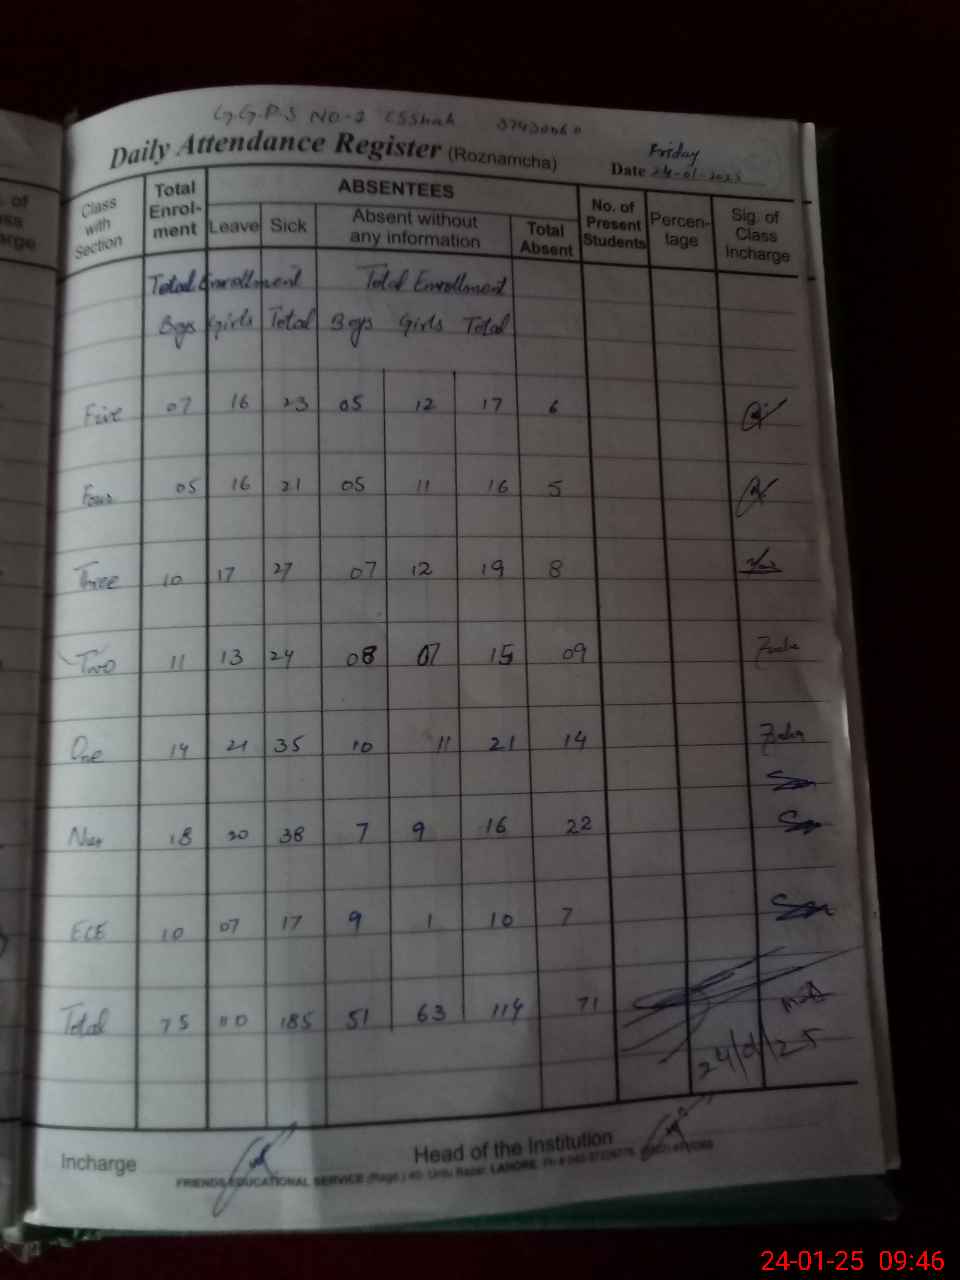 G.G.P.S NO-2
Daily Attendance Register (Roznamcha)
Friday
Date 24-01-2025
Class with Section
Total Enrolment
ABSENTEES
Leave Sick Absent without any information Total Absent
No. of Present Students
Percentage
Sig. of Class Incharge
Total Enrollment Total Enrollment
Boys Girls Total Boys Girls Total
Five 07 16 23 05 12 17 6
Four 05 16 21 05 11 16 5
Three 10 17 27 07 12 19 8
Two 11 13 24 08 07 15 09
One 14 21 35 10 11 21 14
Nur 18 20 38 7 9 16 22
ECE 10 07 17 9 1 10 7
Total 75 110 185 51 63 114 71
24/01/25
Incharge
Head of the Institution
FRIENDS EDUCATIONAL SERVICE (Regd.) 40- Urdu Bazar, LAHORE.
24-01-25 09:46